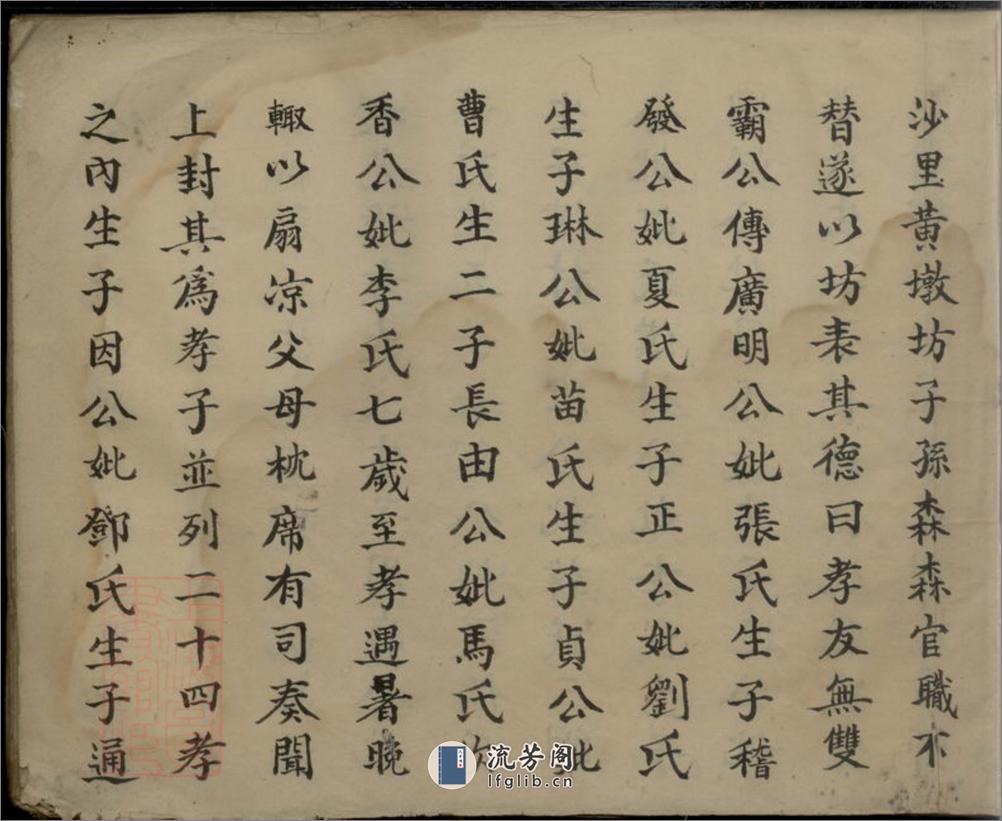 沙里黃墩坊子孫森森官職不
替遂以坊表其德曰孝友無雙
霸公傳廣明公妣張氏生子稽
發公妣夏氏生子正公妣劉氏
生子琳公妣苗氏生子貞公妣
曹氏生二子長由公妣馬氏次
香公妣李氏七歲至孝遇暑晚
輙以扇凉父母枕席有司奏聞
上封其為孝子並列二十四孝
之內生子因公妣鄧氏生子通
流芳阁
lfglib.cn